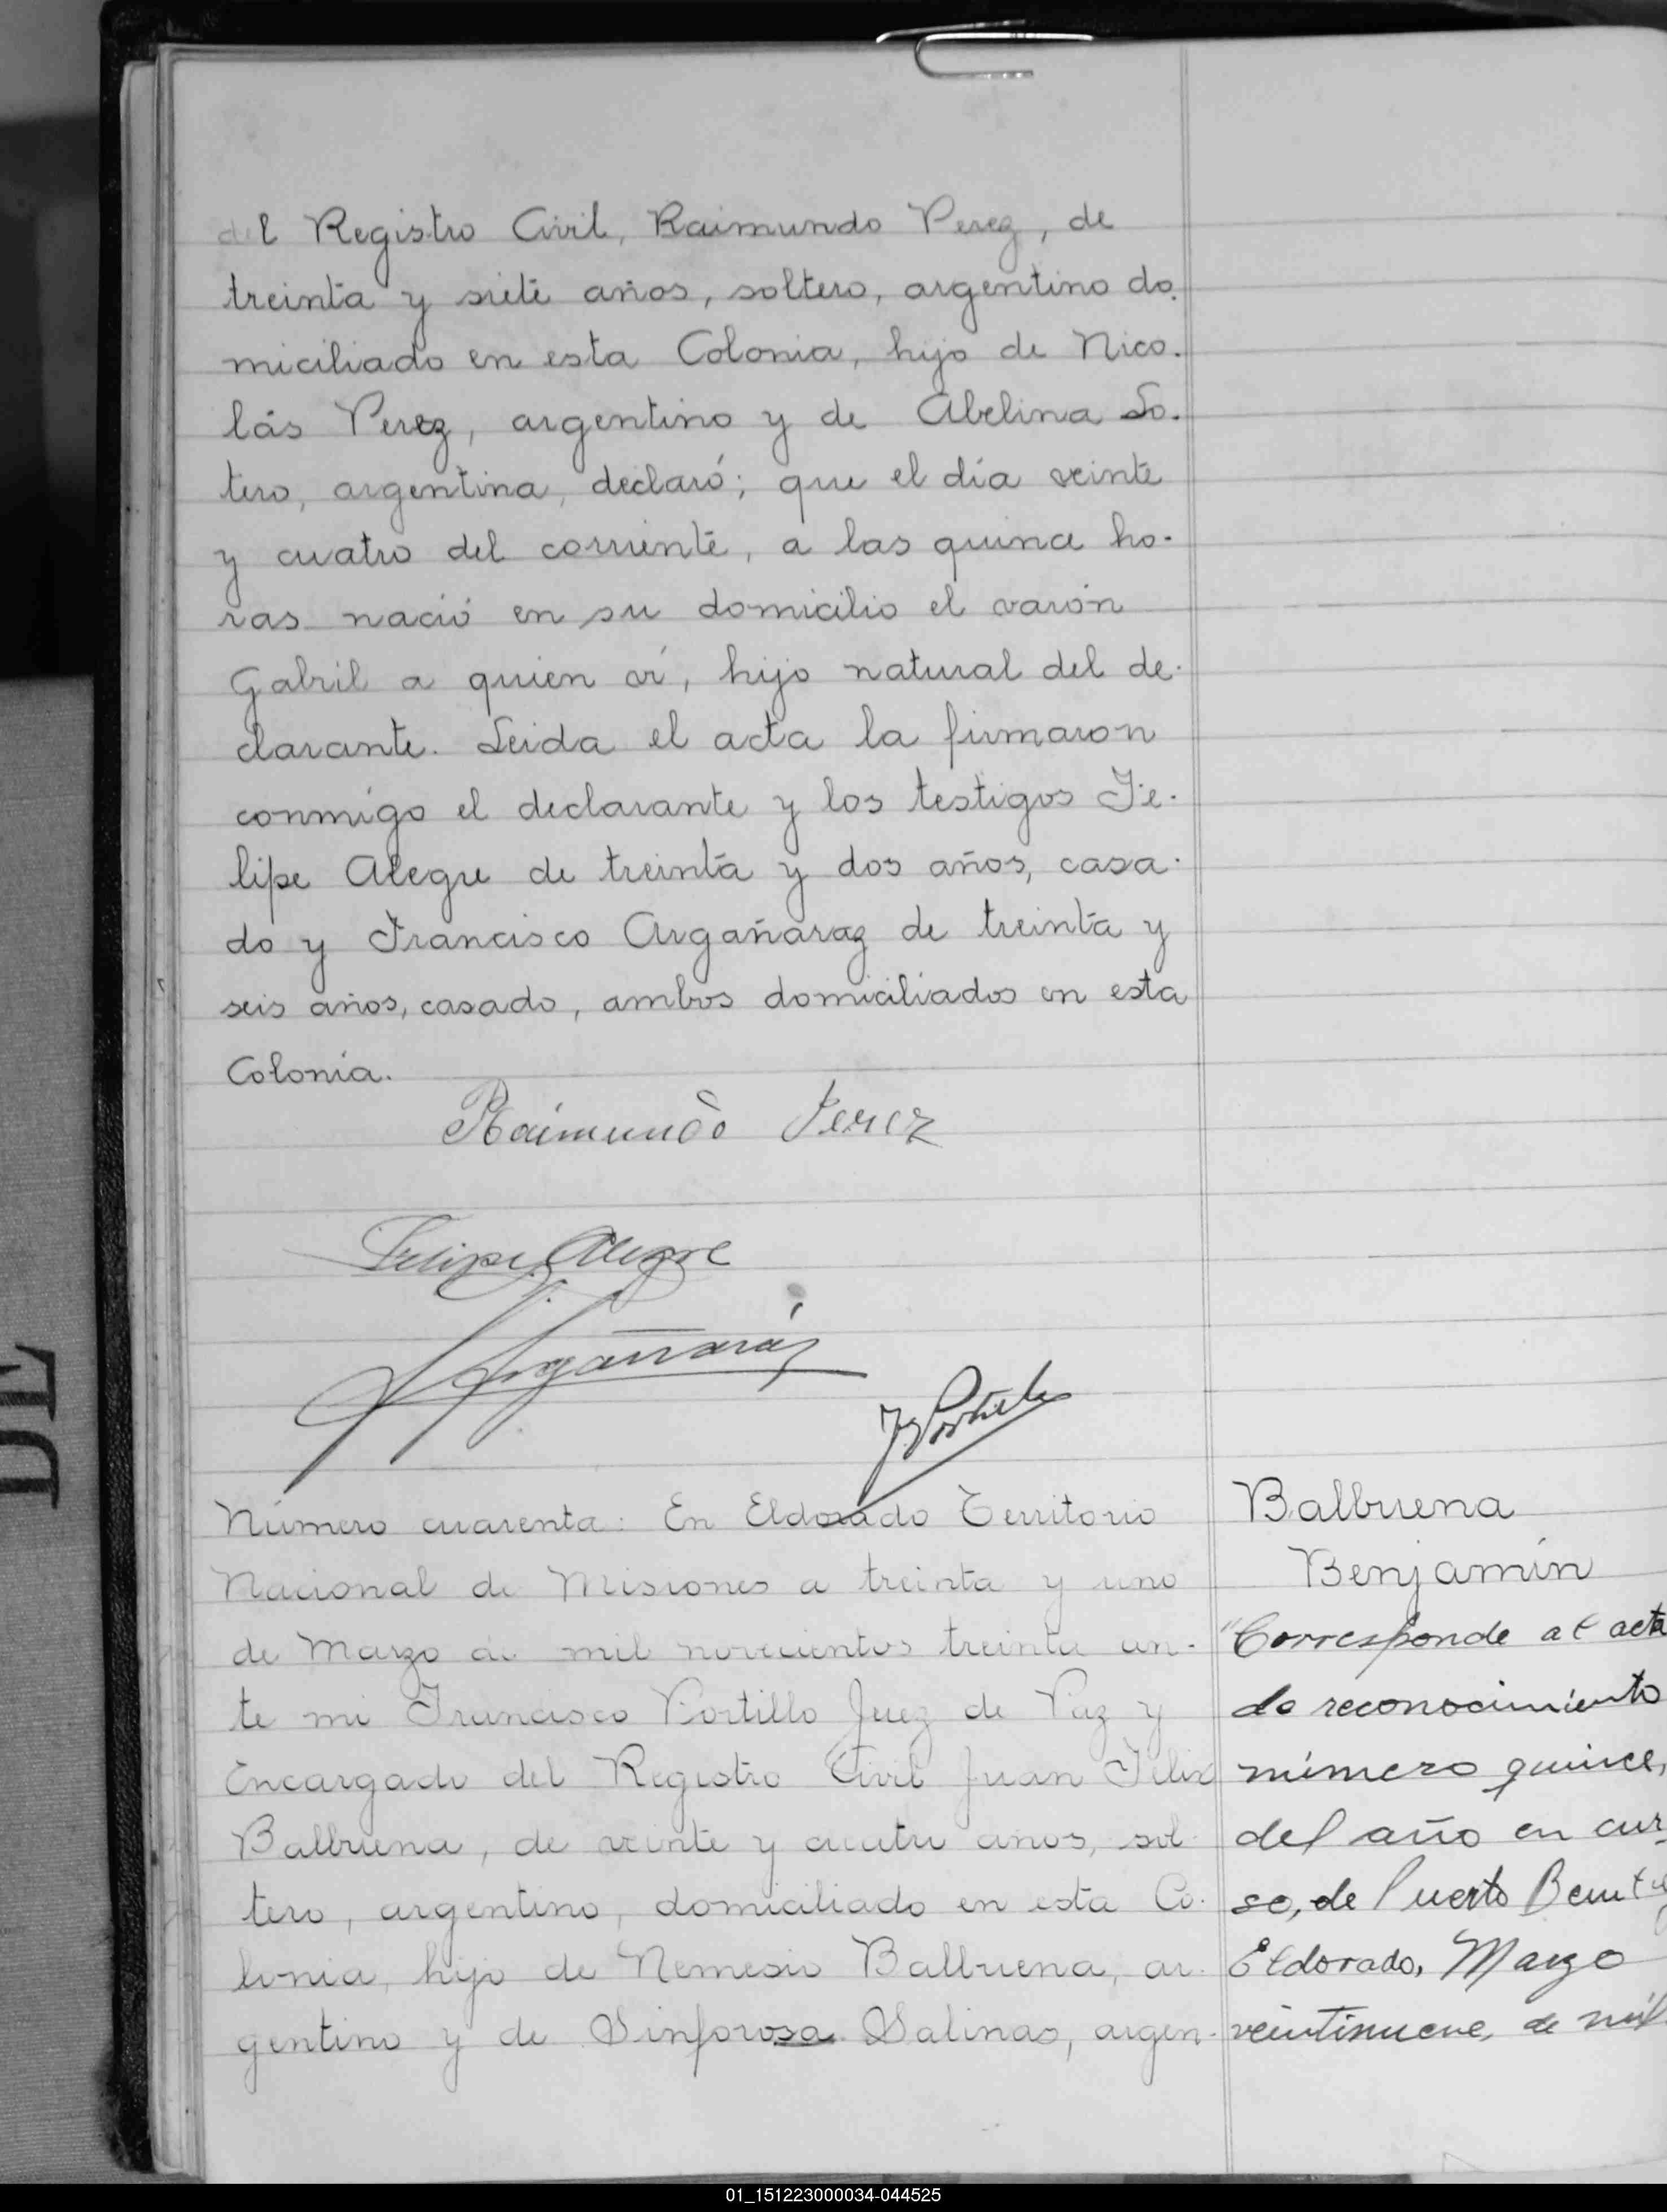 del Registro Civil, Raimundo Perez, de
treinta y siete años, soltero, argentino do.
miciliado en esta Colonia, hijo de Nico.
lás Perez, argentino y de Abelina So.
tero, argentina, declaró; que el día veinte
y cuatro del corriente, a las quince ho.
ras nació en su domicilio el varón
Gabril a quien ví, hijo natural del de.
clarante. Leida el acta la firmaron
conmigo el declarante y los testigos Fe.
lipe Alegre de treinta y dos años, casa.
do y Francisco Argañaraz de treinta y
seis años, casado, ambos domiciliados en esta
Colonia.
Raimundo Perez
Felipe Alegre
Argañaráz
F Portillo
Número cuarenta: En Eldorado Territorio
Nacional de Misiones a treinta y uno
de Marzo de mil novecientos treinta an.
te mi Francisco Portillo Juez de Paz y
Encargado del Registro Civil Juan Felix
Balbuena, de veinte y cuatro años, sol.
tero, argentino, domiciliado en esta Co.
lonia, hijo de Nemesio Balbuena, ar.
gentino y de Sinforosa Salinas, argen.
Balbuena
Benjamín
"Corresponde al acta
de reconocimiento
número quince,
del año en cur
so, de Puerto
Eldorado, Marzo
veintinueve, de mil
DE
01_151223000034-044525